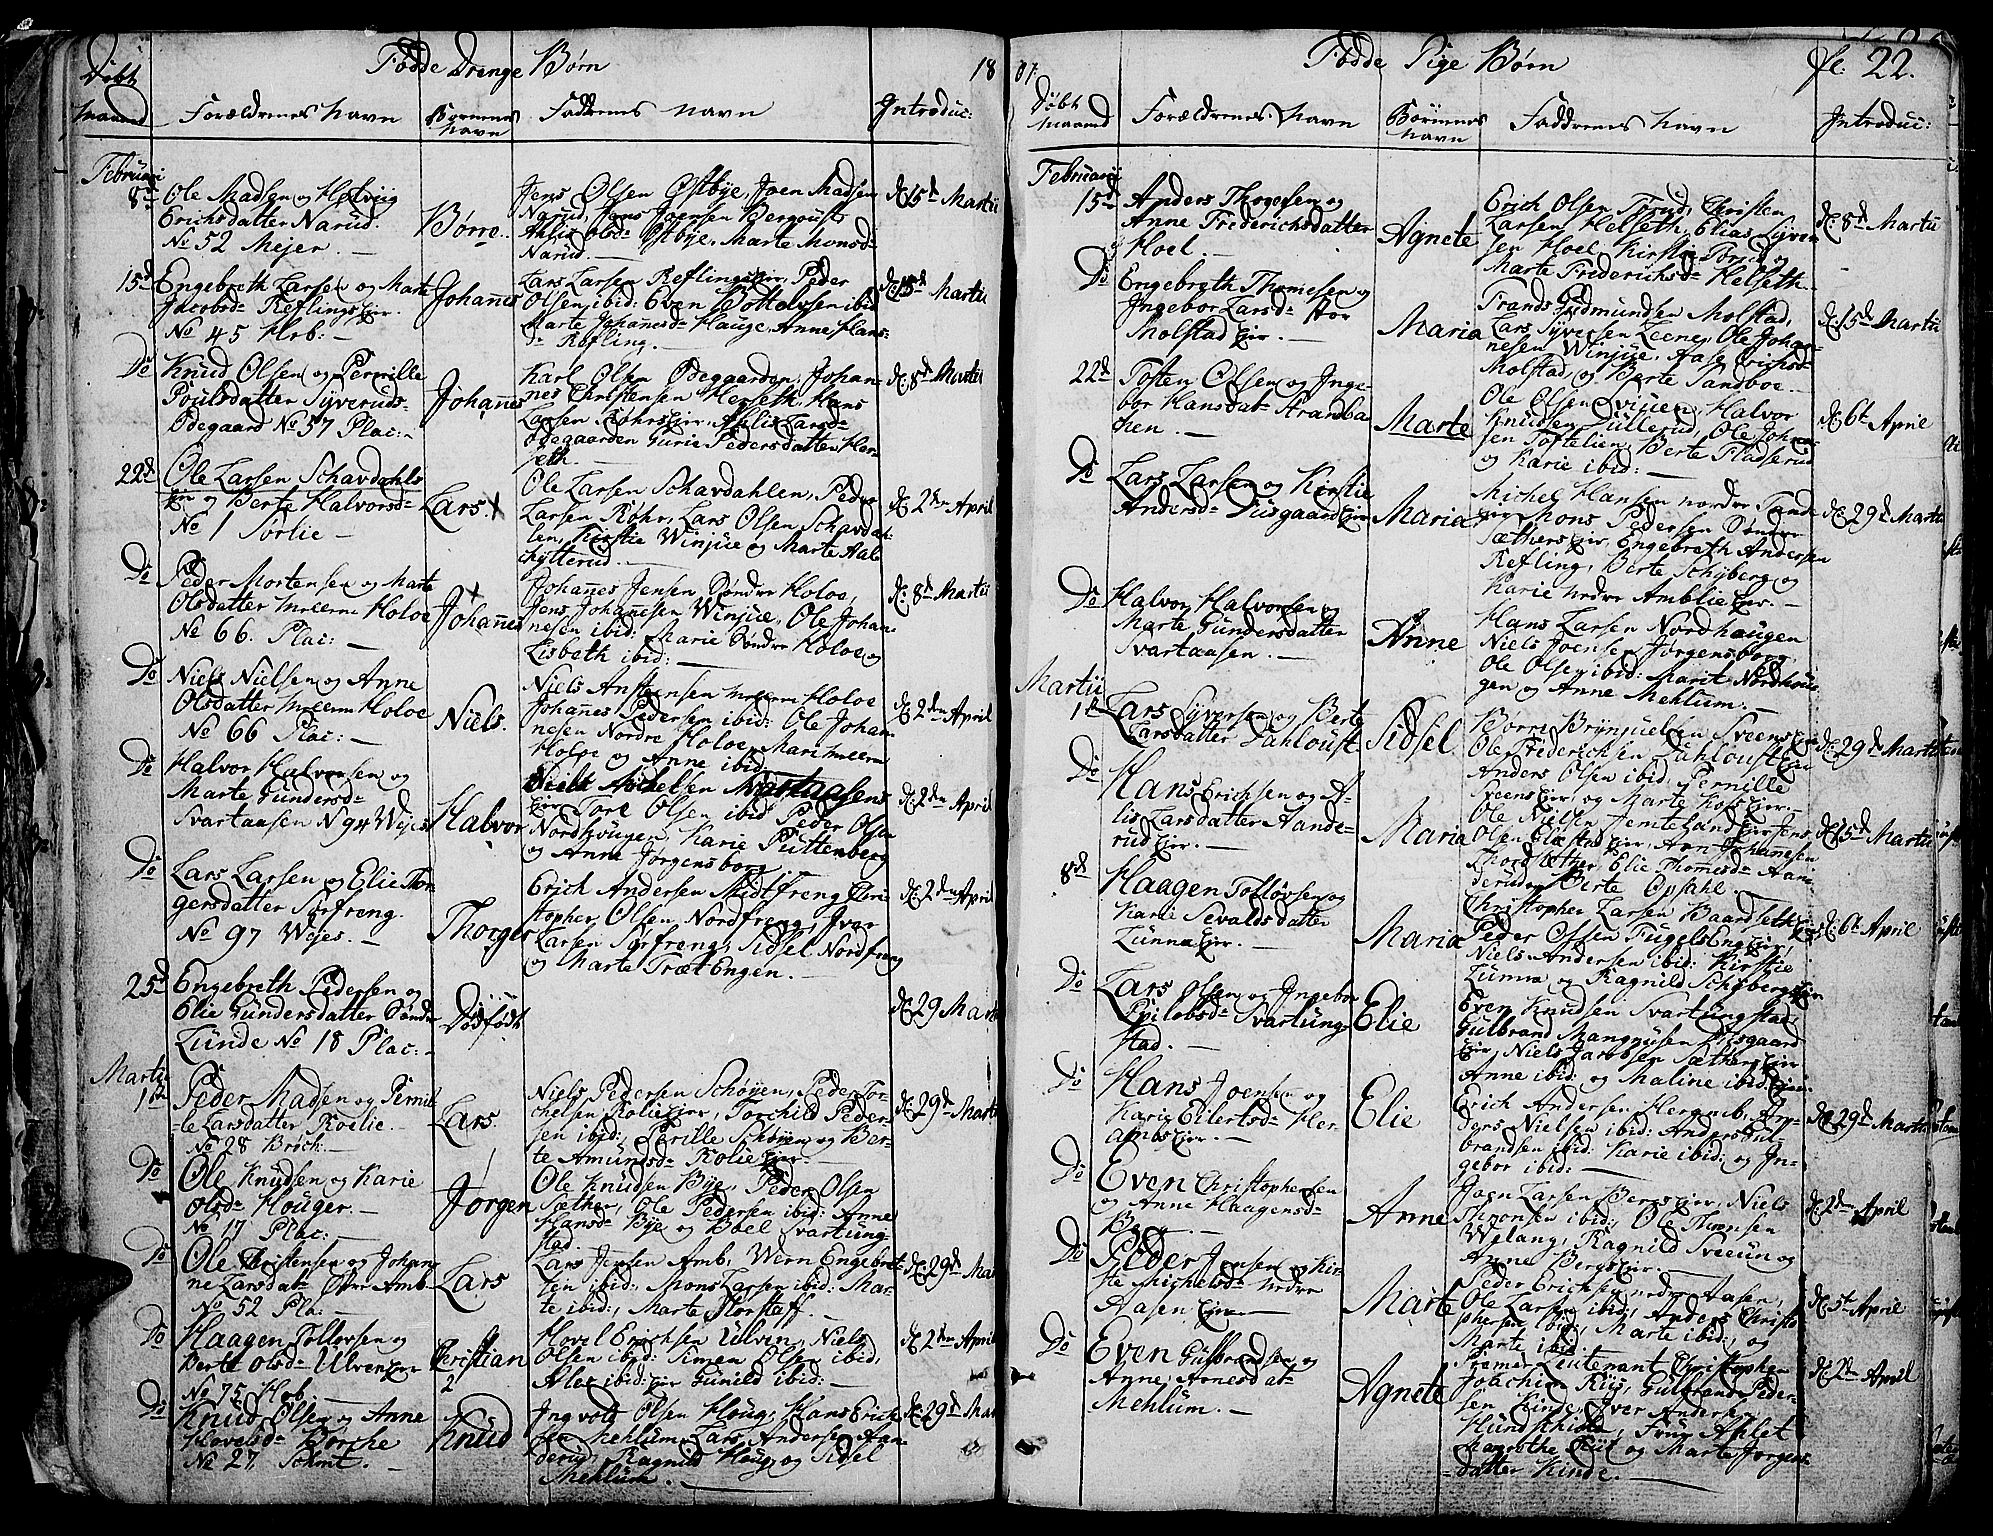 Fødde Drenge Børn 18
Døbt
Maaned
Forældrenes Navn
Børnenes
Navn
Faddrenes Navn
Introduc:
Februari
8d
Ole Madsen og Helvig
Erichsdatter Narud.
No 52 Mejer
Børre
Jens Olsen Østbye, Joen Madsen
Narud, Jens Joensen Bergoust
Ahlis Olsd Østbye, Marte Monsd
Narud.
d: 15d Martii
15d
Engebreth Larsen og Marte
Jacobsd Reflings Eje.
No 45 Hob:
Johannes
Lars Larsen Reflings Eje, Peder
Olsen ibid: Even Bottelvsen ibid
Marte Johanesd Hauge, Anne Hans-
d Refling.
d: 15d Martii
Do
Knud Olsen og Pernille
Poulsdatter Syveruds-
Ødegaard No 57 Plac:
Johannes
Karl Olsen Ødegaarden, Johan-
nes Christensen Helseth, Hans
Larsen Røhrs Eje, Ahlis Larsd
Ødegaarden Gurie Pedersdatter Hel-
seth.
d: 8d Martii
22d
Ole Larsen Schavdahls
Eje og Berte Halvorsd
No 1 Sørlie
Lars
Ole Larsen Schavdahlen, Peder
Larsen Røhr, Lars Olsen Schavdah-
len, Kirstie Winjue og Marte Aale-
hytterud.
d: 2den April
Do
Peder Mortensen og Marte
Olsdatter Meem Holoe
No 66. Plac:
Johannes
Johannes Jensen Søndre Holoe,
Jens Johanesen Winjue, Ole Johan-
nesen ibid: Marie Søndre Holoe og
Lisbeth ibid:
d: 8d Martii
Do
Niels Nielsen og Anne
Olsdatter Meem Holoe
No 66 Plac:
Niels.
Niels Anstensen Meem Holoe
Johannes Pedersen ibid: Ole Johan-
nesen Nordre Holoe, Mari Meem
Holoe og Anne ibid:
d: 2den April
Do
Halvor Halvorsen og
Marte Gundersd
Svartaasen No 94 Wejes
Halvor
Niels Michelsen Svartaasens
Eje Tore Olsen ibid Peder Olsen
Nordhougen, Karie Puttenberg
og Anne Jørgensborg
d: 2den April
Do
Lars Larsen og Elie Tor-
gersdatter Sørfreng.
No 97 Wejes.
Thorger
Erich Andersen Midtfreng Chri-
stopher Olsen Nordfreng, Iver
Larsen Sørfreng, Sidsel Nordfreng
og Marte Træt Engen.
d: 2den April
25d
Engebreth Pedersen og
Elie Gundersdatter Søndre
Lunde No 18 Plac:
Dødfødt
d: 29 Martii
Martii
1ste
Peder Madsen og Pernil-
le Larsdatter Roelie.
No 28 Brøch.
Lars
Niels Pedersen Schøyen, Peder Tor-
chelsen Rolie Eje, Torchild Peder-
sen ibid:, Perille Schøyen og Ber-
te Amundsd Rolie Eje.
d: 29d Martii
Do
Ole Knudsen og Karie
Olsd Houger.
No 17 Plac:
Jørgen
Ole Knudsen Bye, Peder Olsen
Sæther, Ole Pedersen ibid: Anne
Hansd Bye og Boel Svartung-
stad.
Do
Ole Christensen og Johan-
ne Larsdat Amb.
No 52 Plac:
Lars
Lars Jensen Amb, Wern Engebret-
sen ibid: Mons Larsen ibid: Mar-
te ibid:, Marte Horstaff.
d: 29d Martii
Do
Haagen Tollovsen og
Berte Olsd Ulven Eje
No 75 Hob.
Christian
2
Hovel Erichsen Ulven, Niels
Olsen ibid: Simen Olsen ibid,
Aloe ibid: Eje Gunild ibid:
d: 2den April
Do
Knud Olsen og Anne
Hovelsd Borche
No 27, Schmt.
Knud
Ingvold Olsen Houg, Hans Erich-
sen Mehlum, Lars Andersen Aan-
derud, Ragnild Houg, og Sidsel
Mehlum.
d: 29d Martii
07. Fødde Pige Børn fl: 22.
Døbt
Maaned
Forældrenes Navn
Børnenes
Navn
Faddrenes Navn
Introduc:
Februari
15d
Anders Thogesen og
Anne Friderichsdatter
Hoel.
Agnete
Erich Olsen Frud, Christen
Larsen Helseth, Elias Syver-
sen Hoel, Kirstie og
Marte Friderichsd Helseth.
d: 8d Martii
Do
Engebreth Thomesen og
Ingebor Larsd Stor
Molstad Eje.
Maria
Frands Gudmundsen Molstad,
Lars Syversen Leene, Ole Johan-
nesen Winjue, Aase Erichsd
Molstad, og Berte Sandboe.
d: 15d Martii
22d
Tosten Olsen og Inge-
bor Hansdat Strandba-
chen.
Marte
Ole Olsen Sviuen, Halvor
Knudsen Dullerud, Ole Johan-
sen Toftelien, Berte Fladserud
og Karie ibid:
d: 6t April
Do
Lars Larsen og Kirstie
Andersd Diisgaard Eje
Maria
Michel Hansen nordre
Eje Mons Pedersen Søndre
Sæthers Eje, Engebreth Andersen
Refling, Berte Schyberg og
Karie Nedre Amblie Eje.
d: 29d Martii
Do
Halvor Halvorsen og
Marte Gundersdatter
Svartaasen.
Anne
Hans Larsen Nordhaugen
Niels Joensen Jørgensborg,
Ole Olsen ibid: Marit Nordhou-
gen og Anne Mehlum.
Martii
1te
Lars Syversen og Berte
Larsdatter Dahloust
Sidsel
Børre Brynjuelsen Sveens Eje
Ole Friderichsen Dahloust Eje
Anders Olsen ibid: Pernille
Sveens Eje, og Marte Hofs Eje.
d: 29d Martii
Do
Hans Erichsen og A-
lis Larsdatter Aande-
rud Eje.
Maria
Ole Nielsen Jemteland Eje Jens
Olsen Elæstad Eje, Aan Johanesen
Thord, Elie Thomesd Aan-
derud og Berte Opsahl.
d: 15d Martii
8d
Haagen Tollovsen og
Karie Sevaldsdatter
Lunna Eje.
Maria
Christopher Larsen Baardseth Eje
Peder Olsen FugelsEng Eje,
Niels Andersen ibid: Kirstie
Lunna og Ragnild Schyberg Eje
d: 6t April
Do
Lars Olsen og Ingebor
Svartung-
stad.
Elie
Even Knudsen Svartungstad,
Gulbrand Mangnusen Diisgaard
Eje, Niels Jacobsen Sæthers Eje
Anne ibid: og Maline ibid Eje.
Do
Hans Joensen og
Karie Eilertsd Her-
ambs Eje.
Elie
Erich Andersen Heramb, An-
ders Nielsen ibid: Anders Gul-
brandsen ibid: Karie ibid: og In-
gebor ibid:
d: 29d Martii
Do
Even Christophersen
og Anne Haagensd
Berg.
Anne
Joen Larsen Bergs Eje, Niels
Thronsen ibid:, Ole Thronsen
Welang, Ragnild Sveeun og
Anne Bergs Eje.
d: 2den April
Do
Peder Jensen og Kir-
ste Michelsd nedre
Aasen Eje
Marte
Peder Erichsen nedre Aasen,
Ole Larsen ibid:, Anders Christo-
phersen ibid:, Marte ibid:, og
Marte ibid.
d: 5te April
Do
Even Gulbrandsen og
Anne Arnesdat
Mehlum.
Agnete
Premier Leutenant Christopher
Joachim Riis, Gulbrand Peder-
sen Kinde, Iver Andersen
Hundschiold, Fru Ahlet
Magrethe Riis og Marte Jørgens-
datter Kinde.
d: 2de April